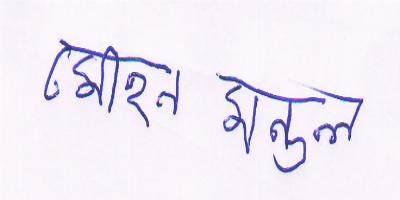 মোহন মন্ডল